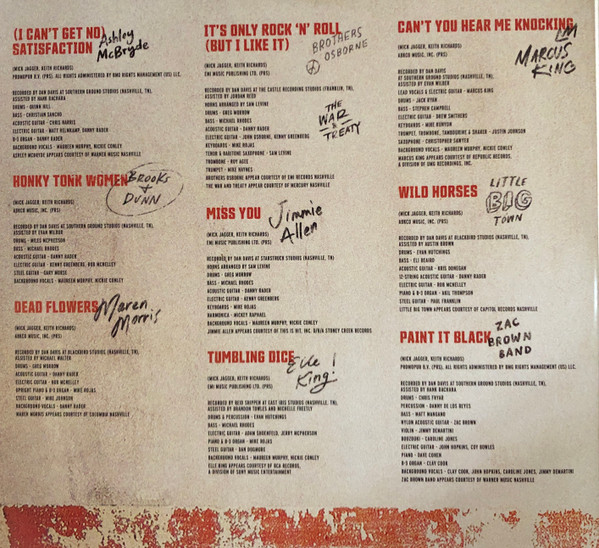 (I CAN'T GET NO)
SATISFACTION
Ashley
McBryde
(MICK JAGGER, KEITH RICHARDS)
PROMOPUB B.V. (PRS). ALL RIGHTS ADMINISTERED BY BMG RIGHTS MANAGEMENT (US) LLC.
RECORDED BY DAN DAVIS AT SOUTHERN GROUND STUDIOS (NASHVILLE, TN).
ASSISTED BY HANK BACHARA
DRUMS - QUINN HILL
BASS - CHRISTIAN SANCHO
ACOUSTIC GUITAR - CHRIS HARRIS
ELECTRIC GUITAR - MATT HELMKAMP, DANNY RADER
B-3 ORGAN - DANNY RADER
BACKGROUND VOCALS - MAUREEN MURPHY, NICKIE CONLEY
ASHLEY MCBRYDE APPEARS COURTESY OF WARNER MUSIC NASHVILLE
HONKY TONK WOMEN
BROOKS
+
DUNN
(MICK JAGGER, KEITH RICHARDS)
ABKCO MUSIC, INC. (PRS)
RECORDED BY DAN DAVIS AT SOUTHERN GROUND STUDIOS (NASHVILLE, TN).
ASSISTED BY EVAN WILBER
DRUMS - MILES MCPHERSON
BASS - MICHAEL RHODES
ACOUSTIC GUITAR - DANNY RADER
ELECTRIC GUITAR - KENNY GREENBERG, ROB MCNELLEY
STEEL GUITAR - GARY MORSE
BACKGROUND VOCALS - MAUREEN MURPHY, NICKIE CONLEY
DEAD FLOWERS
Maren
Morris
(MICK JAGGER, KEITH RICHARDS)
ABKCO MUSIC, INC. (PRS)
RECORDED BY DAN DAVIS AT BLACKBIRD STUDIOS (NASHVILLE, TN).
ASSISTED BY MICHAEL WALTER
DRUMS - GREG MORROW
ACOUSTIC GUITAR - DANNY RADER
ELECTRIC GUITAR - ROB MCNELLEY
UPRIGHT PIANO & B-3 ORGAN - MIKE ROJAS
STEEL GUITAR - MIKE JOHNSON
BACKGROUND VOCALS - DANNY RADER
MAREN MORRIS APPEARS COURTESY OF COLUMBIA NASHVILLE
IT'S ONLY ROCK 'N' ROLL
(BUT I LIKE IT)
BROTHERS
OSBORNE
(MICK JAGGER, KEITH RICHARDS)
EMI MUSIC PUBLISHING LTD. (PRS)
THE
WAR
&
TREATY
RECORDED BY DAN DAVIS AT THE CASTLE RECORDING STUDIOS (FRANKLIN, TN).
ASSISTED BY JORDAN REED
HORNS ARRANGED BY SAM LEVINE
DRUMS - GREG MORROW
BASS - MICHAEL RHODES
ACOUSTIC GUITAR - DANNY RADER
ELECTRIC GUITAR - JOHN OSBORNE, KENNY GREENBERG
KEYBOARDS - MIKE ROJAS
TENOR & BARITONE SAXOPHONE - SAM LEVINE
TROMBONE - ROY AGEE
TRUMPET - MIKE HAYNES
BROTHERS OSBORNE APPEAR COURTESY OF EMI RECORDS NASHVILLE
THE WAR AND TREATY APPEAR COURTESY OF MERCURY NASHVILLE
MISS YOU
Jimmie
Allen
(MICK JAGGER, KEITH RICHARDS)
EMI MUSIC PUBLISHING LTD. (PRS)
RECORDED BY DAN DAVIS AT STARSTRUCK STUDIOS (NASHVILLE, TN).
HORNS ARRANGED BY SAM LEVINE
DRUMS - GREG MORROW
BASS - MICHAEL RHODES
ACOUSTIC GUITAR - DANNY RADER
ELECTRIC GUITAR - KENNY GREENBERG
KEYBOARDS - MIKE ROJAS
HARMONICA - MICKEY RAPHAEL
BACKGROUND VOCALS - MAUREEN MURPHY, NICKIE CONLEY
JIMMIE ALLEN APPEARS COURTESY OF THIS IS HIT, INC. D/B/A STONEY CREEK RECORDS
TUMBLING DICE
Elle
King!
(MICK JAGGER, KEITH RICHARDS)
EMI MUSIC PUBLISHING LTD. (PRS)
RECORDED BY REID SHIPPEN AT EAST IRIS STUDIOS (NASHVILLE, TN).
ASSISTED BY BRANDON TOWLES AND MICHELLE FREETLY
DRUMS & PERCUSSION - EVAN HUTCHINGS
BASS - MICHAEL RHODES
ELECTRIC GUITAR - ADAM SHOENFELD, JERRY MCPHERSON
PIANO & B-3 ORGAN - MIKE ROJAS
STEEL GUITAR - DAN DUGMORE
BACKGROUND VOCALS - MAUREEN MURPHY, NICKIE CONLEY
ELLE KING APPEARS COURTESY OF RCA RECORDS,
A DIVISION OF SONY MUSIC ENTERTAINMENT
CAN'T YOU HEAR ME KNOCKING
MARCUS
KING
(MICK JAGGER, KEITH RICHARDS)
ABKCO MUSIC, INC. (PRS)
RECORDED BY DAN DAVIS
AT SOUTHERN GROUND STUDIOS (NASHVILLE, TN).
ASSISTED BY EVAN WILBER
LEAD VOCALS & ELECTRIC GUITAR - MARCUS KING
DRUMS - JACK RYAN
BASS - STEPHEN CAMPBELL
ELECTRIC GUITAR - DREW SMITHERS
KEYBOARDS - MIKE RUNYON
TRUMPET, TROMBONE, TAMBOURINE & SHAKER - JUSTIN JOHNSON
SAXOPHONE - CHRISTOPHER SPIES
BACKGROUND VOCALS - MAUREEN MURPHY, NICKIE CONLEY
MARCUS KING APPEARS COURTESY OF REPUBLIC RECORDS,
A DIVISION OF UMG RECORDINGS, INC.
WILD HORSES
LITTLE
BIG
TOWN
(MICK JAGGER, KEITH RICHARDS)
ABKCO MUSIC, INC. (PRS)
RECORDED BY DAN DAVIS AT BLACKBIRD (NASHVILLE, TN).
ASSISTED BY AUSTIN BROWN
DRUMS - EVAN HUTCHINGS
BASS - ELI BEAIRD
ACOUSTIC GUITAR - KRIS DONEGAN
12-STRING ACOUSTIC GUITAR - DANNY RADER
ELECTRIC GUITAR - ROB MCNELLEY
PIANO & B-3 ORGAN - AKIL THOMPSON
STEEL GUITAR - PAUL FRANKLIN
LITTLE BIG TOWN APPEARS COURTESY OF CAPITOL RECORDS NASHVILLE
PAINT IT BLACK
ZAC
BROWN
BAND
(MICK JAGGER, KEITH RICHARDS)
PROMOPUB B.V. (PRS). ALL RIGHTS ADMINISTERED BY BMG RIGHTS MANAGEMENT (US) LLC.
RECORDED BY DAN DAVIS AT SOUTHERN GROUND STUDIOS (NASHVILLE, TN).
ASSISTED BY HANK BACHARA
DRUMS - CHRIS FRYAR
PERCUSSION - DANNY DE LOS REYES
BASS - MATT MANGANO
NYLON ACOUSTIC GUITAR - ZAC BROWN
VIOLIN - JIMMY DEMARTINI
BOUZOUKI - CAROLINE JONES
ELECTRIC GUITAR - JOHN HOPKINS, COY BOWLES
PIANO - DAVE COHEN
B-3 ORGAN - CLAY COOK
BACKGROUND VOCALS - CLAY COOK, JOHN HOPKINS, CAROLINE JONES, JIMMY DEMARTINI
ZAC BROWN BAND APPEARS COURTESY OF WARNER MUSIC NASHVILLE